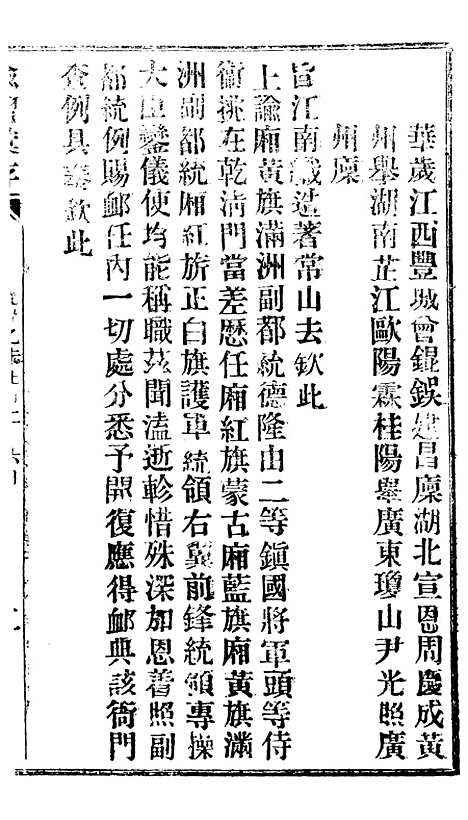 華歲江西豐城曾錕鋘建昌廩湖北宣恩周慶成黃
州舉湖南芷江歐陽霖桂陽舉廣東瓊山尹光照廣
州廩
旨江南織造著常山去欽此
上諭廂黃旗滿洲副都統德隆由二等鎮國將軍頭等侍
衛挑在乾淸門當差歷任廂紅旗蒙古廂藍旗廂黃旗滿
洲副都統廂紅旂正白旗護軍統領右翼前鋒統領專操
大臣鑾儀使均能稱職茲聞溘逝軫惜殊深加恩着照副
都統例賜䘏任內一切處分悉予開復應得䘏典該衙門
查例具奏欽此